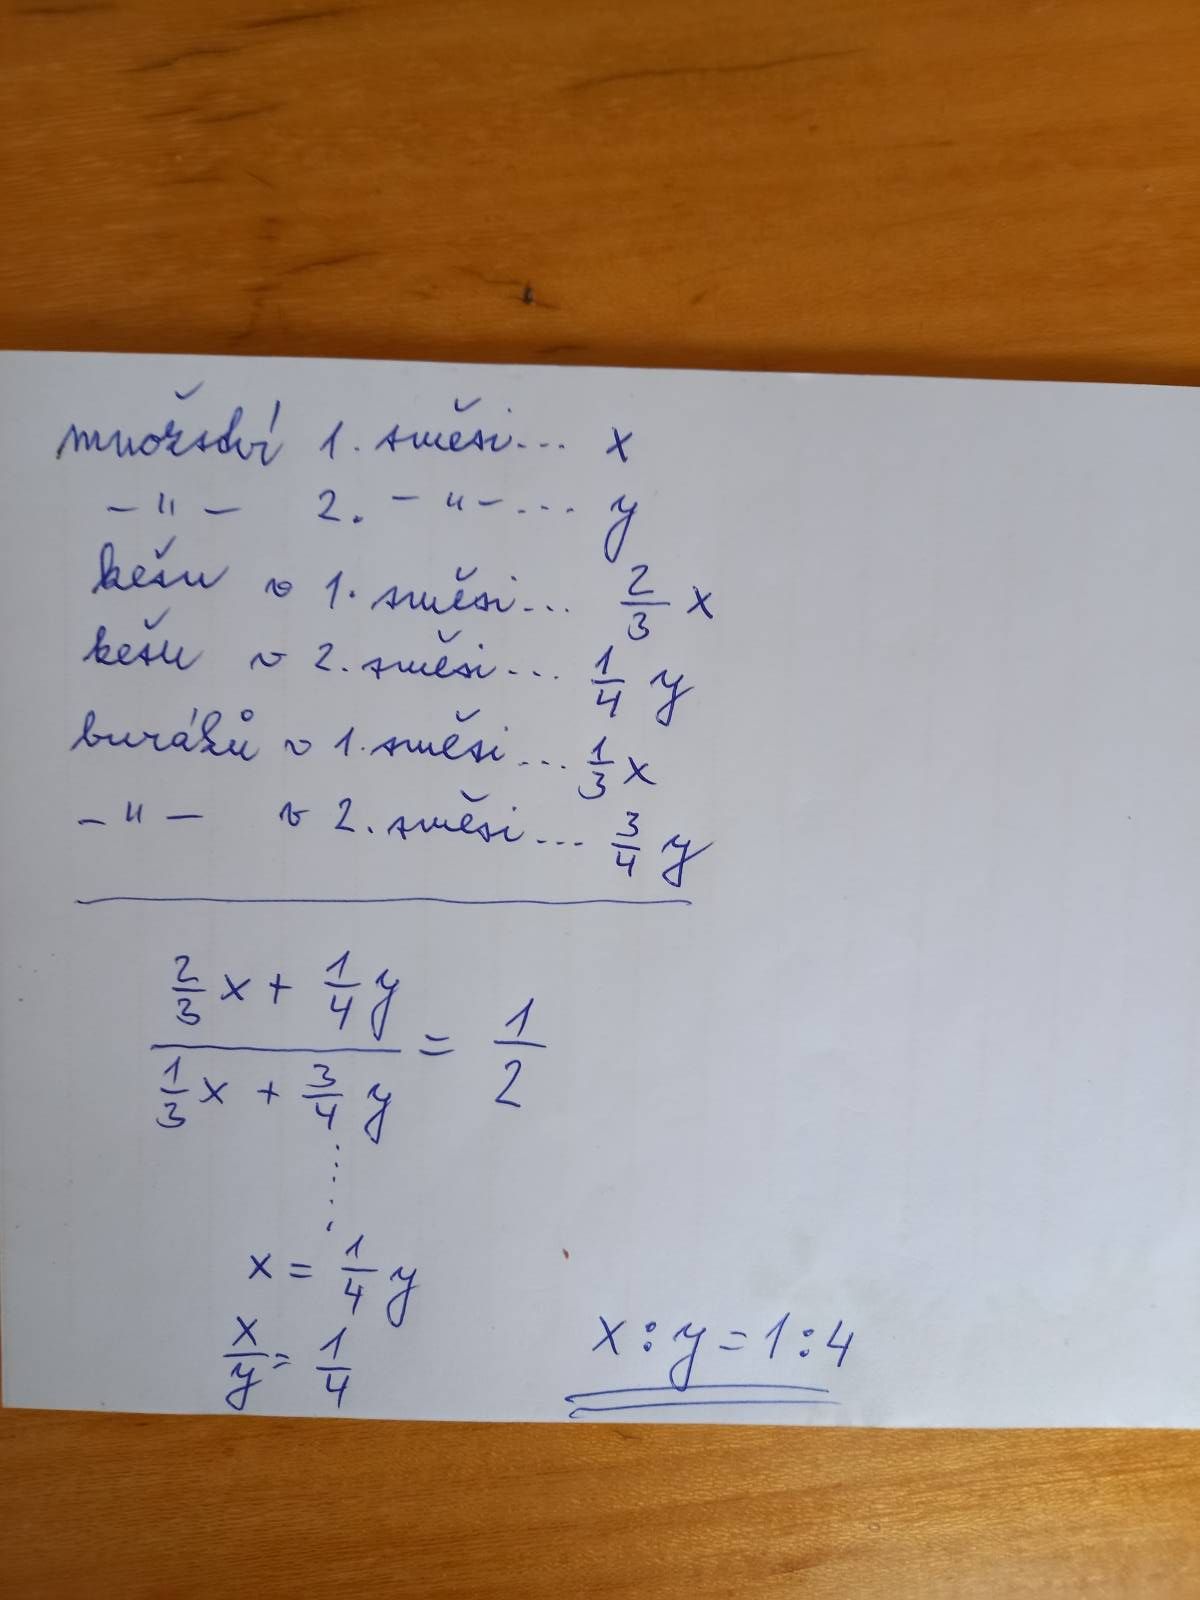 množství 1. směsi... x
-"- 2. -"-... y
kešu v 1. směsi... 2/3 x
kešu v 2. směsi... 1/4 y
buráků v 1. směsi... 1/3 x
-"- v 2. směsi... 3/4 y
(2/3 x + 1/4 y) / (1/3 x + 3/4 y) = 1/2
x = 1/4 y
x/y = 1/4
x : y = 1 : 4